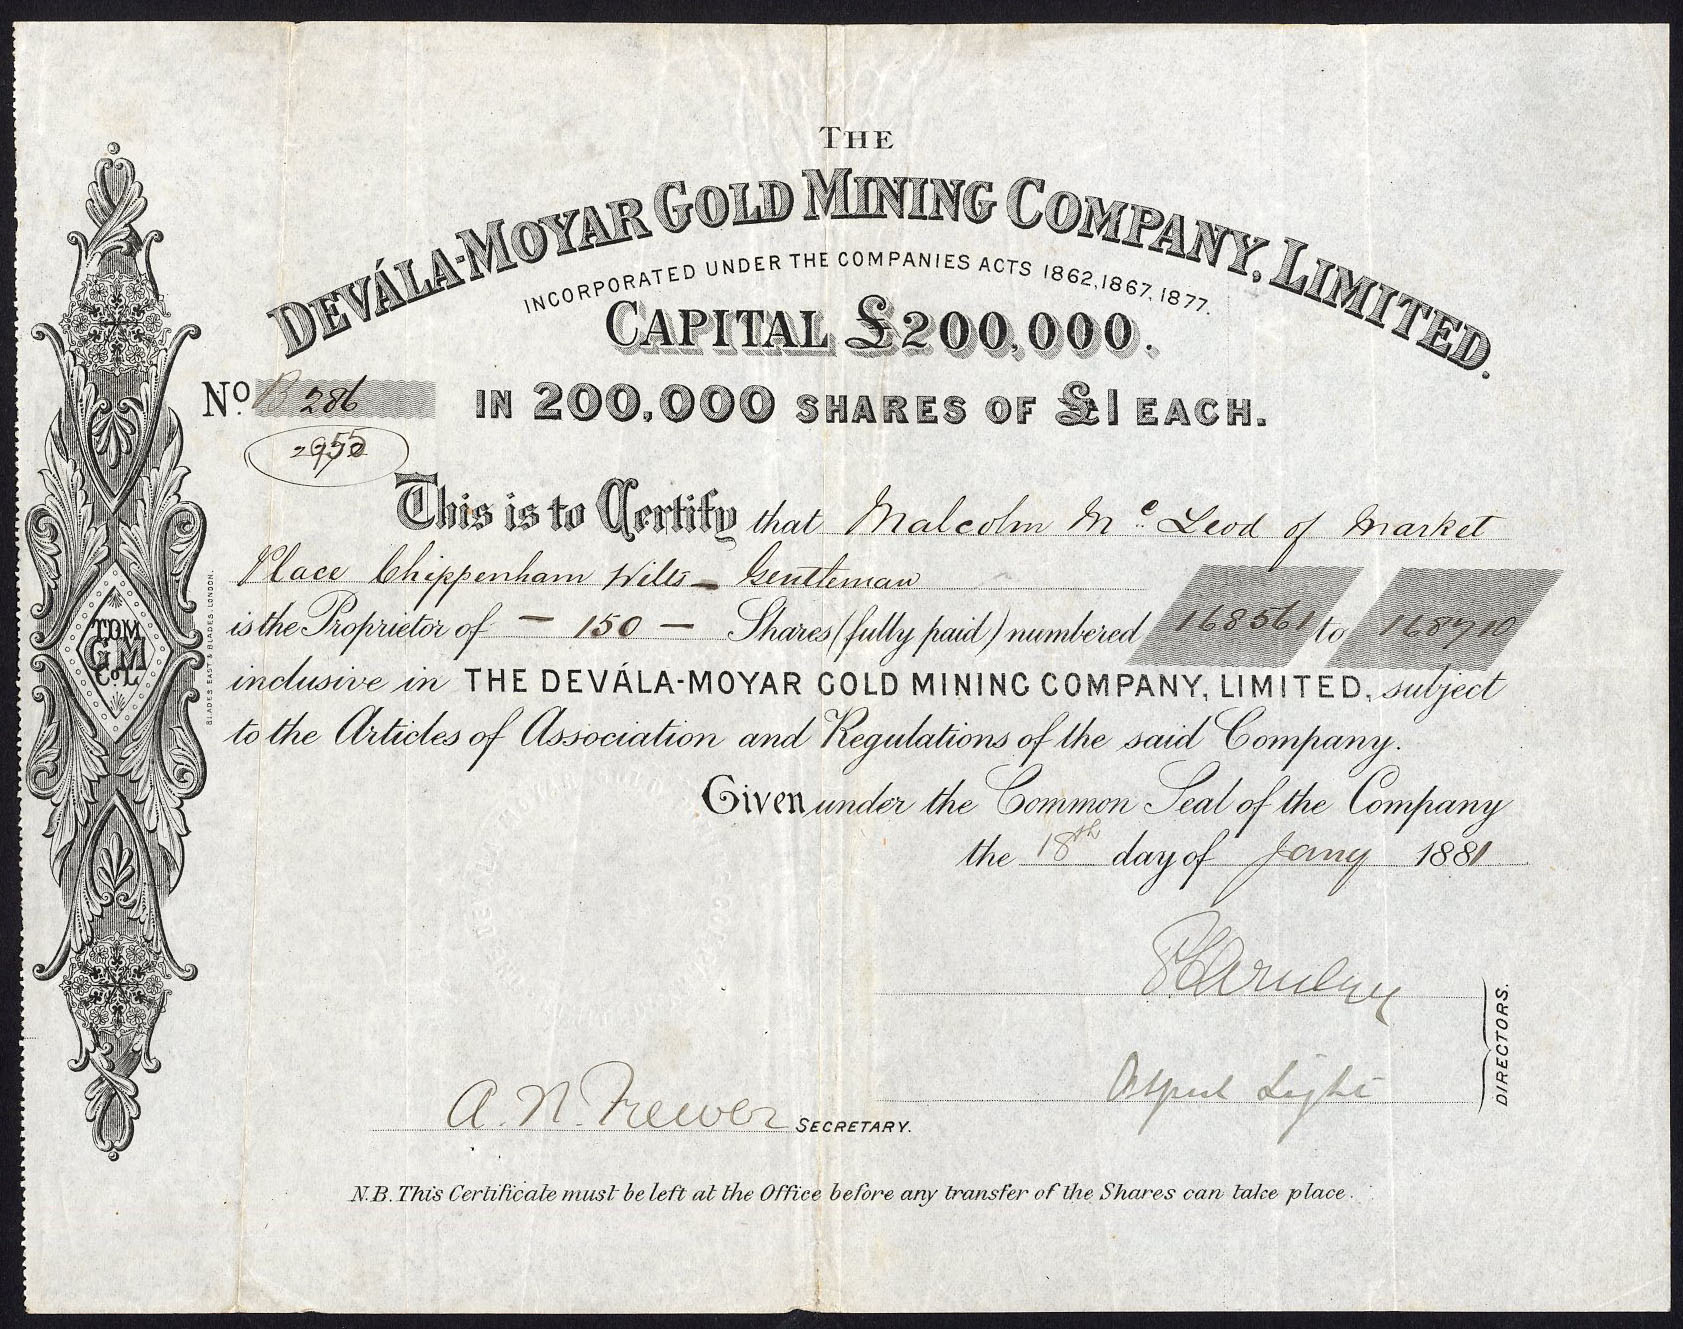 THE
DEVÁLA-MOYAR GOLD MINING COMPANY, LIMITED.
INCORPORATED UNDER THE COMPANIES ACTS 1862, 1867, 1877.
CAPITAL £200,000.
No. B 286 IN 200,000 SHARES OF £1 EACH.
This is to Certify that Malcolm Mc Leod of Market
Place Chippenham Wilts – Gentleman
is the Proprietor of – 150 – Shares (fully paid) numbered 168561 to 168710
inclusive in THE DEVÁLA-MOYAR GOLD MINING COMPANY, LIMITED, subject
to the Articles of Association and Regulations of the said Company.
Given under the Common Seal of the Company
the 18th day of Jany 1881
Light
DIRECTORS.
A. N. Frewer SECRETARY.
N.B. This Certificate must be left at the Office before any transfer of the Shares can take place.
TDM
GM
Co. L
BLADES, EAST & BLADES, LONDON.